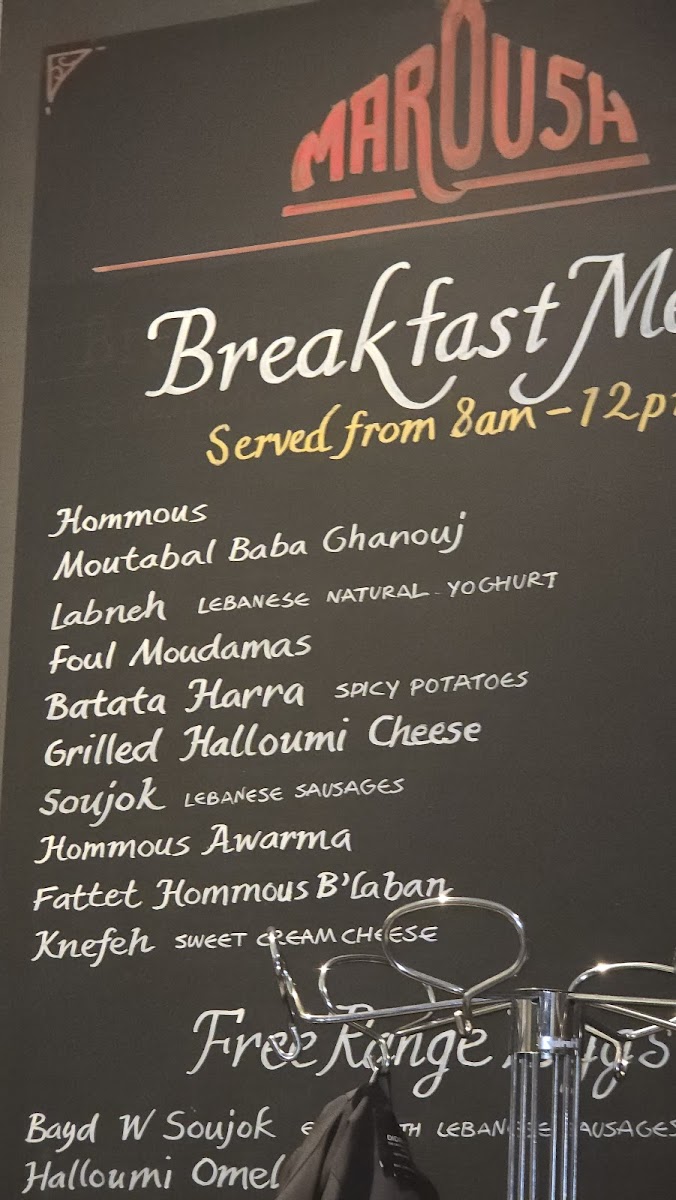 MAROUSH
Breakfast
Served from 8am - 12
Hommous
Moutabal Baba Ghanouj
Labneh LEBANESE NATURAL YOGHURT
Foul Moudamas
Batata Harra SPICY POTATOES
Grilled Halloumi Cheese
Soujok LEBANESE SAUSAGES
Hommous Awarma
Fattet Hommous B'laban
Knefeh SWEET CREAM CHEESE
Free Range
Bayd W Soujok LEBANESE SAUSAGES
Halloumi